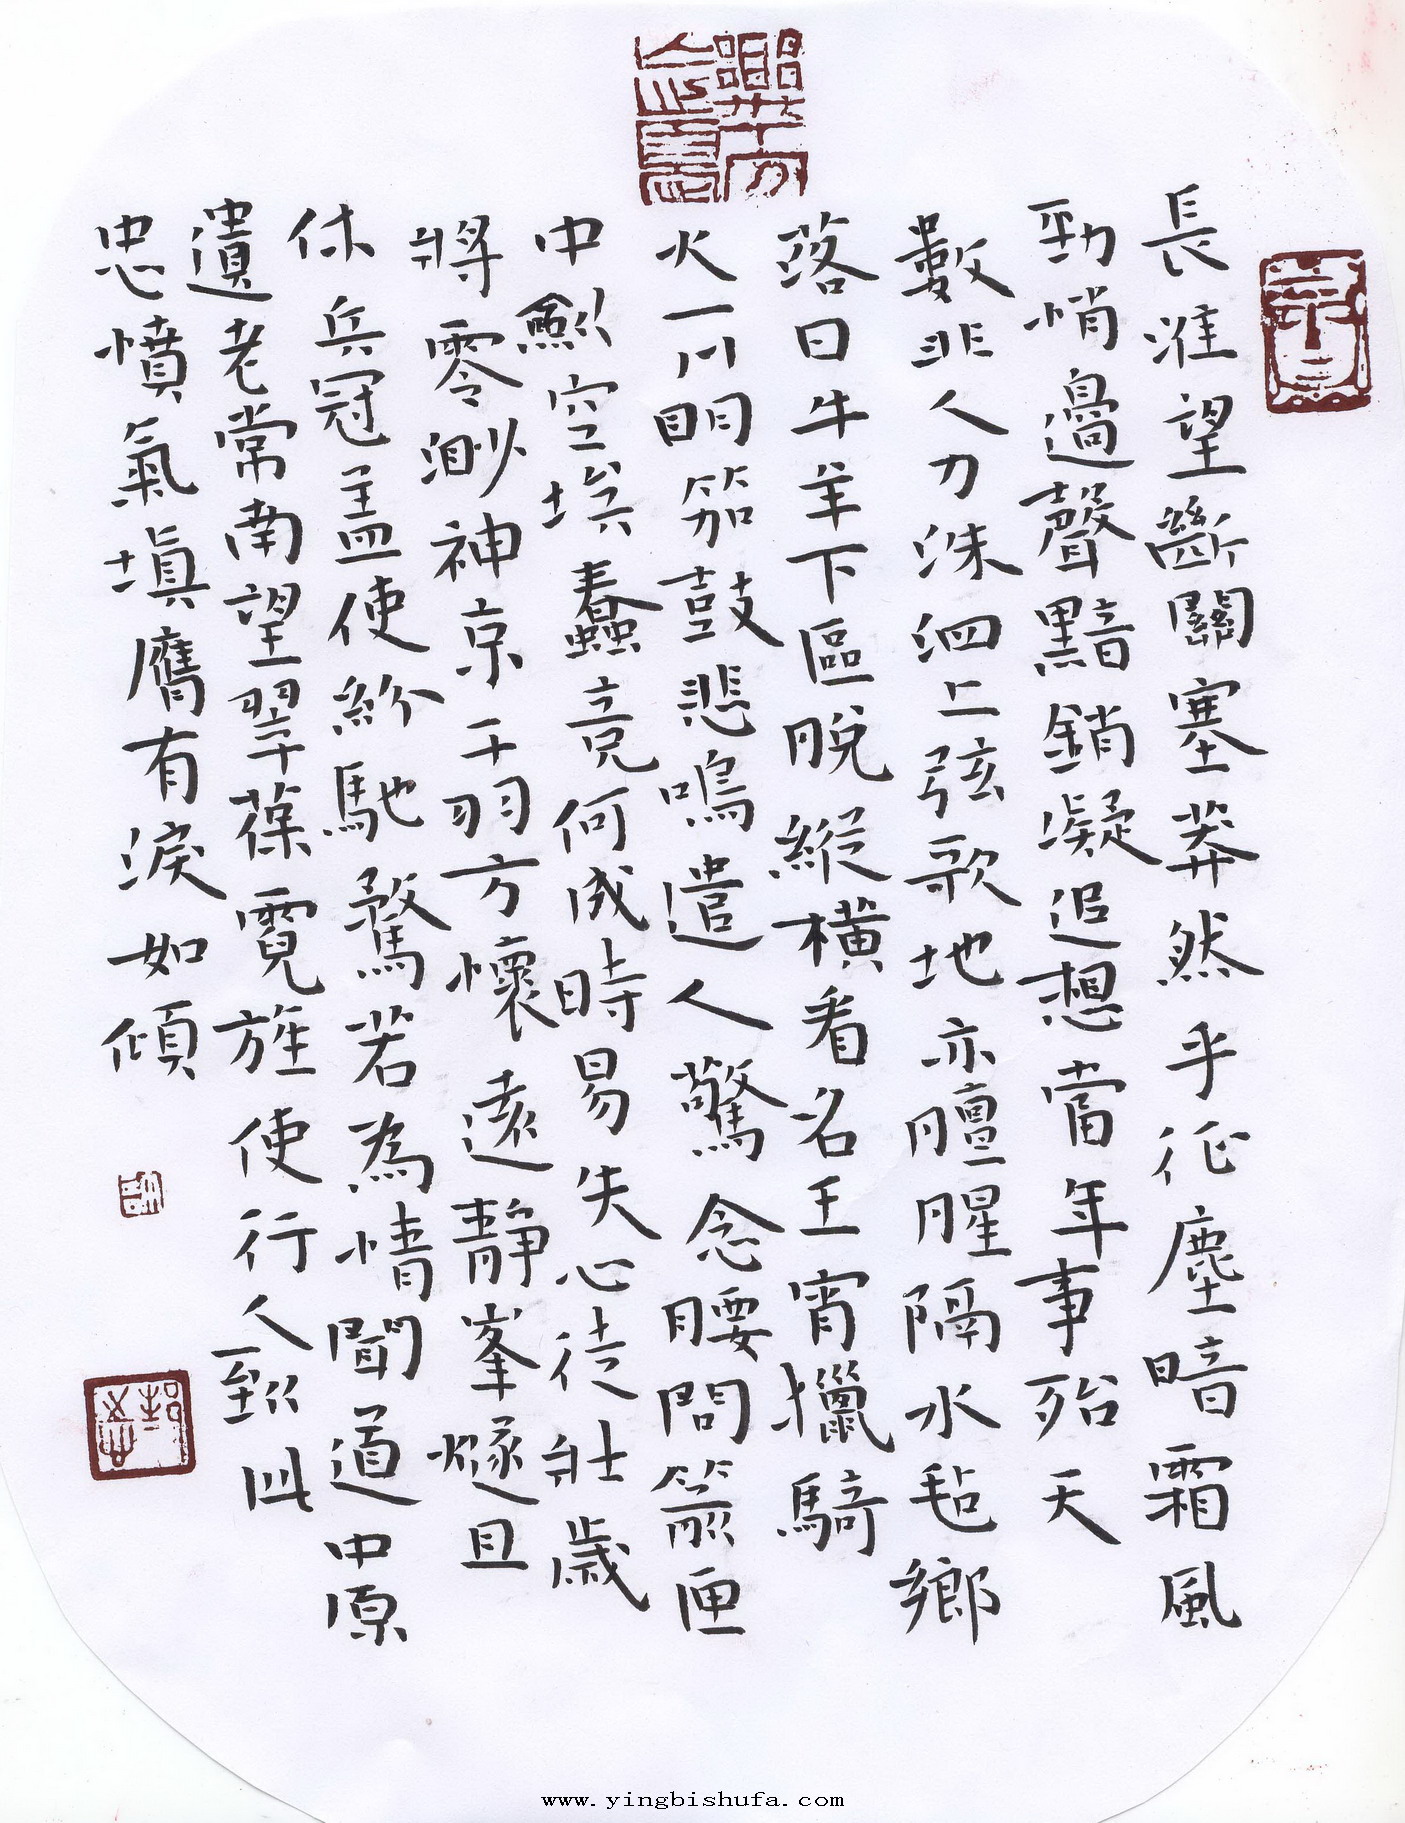 長淮望斷關塞莽然乎征塵暗霜風
勁悄邊聲黯銷凝追想當年事殆天
數非人力洙泗上弦歌地亦膻腥隔水毡鄉
落日牛羊下區脫縱橫看名王宵獵騎
火一川明笳鼓悲鳴遣人驚念腰間箭匣
中劍空埃蠹竟何成時易失心徒壯歲
將零渺神京干羽方懷遠靜峯燧且
休兵冠盖使紛馳騖若為情聞道中原
遺老常南望翠葆霓旌使行人到此
忠憤氣填膺有淚如傾
www.yingbishufa.com